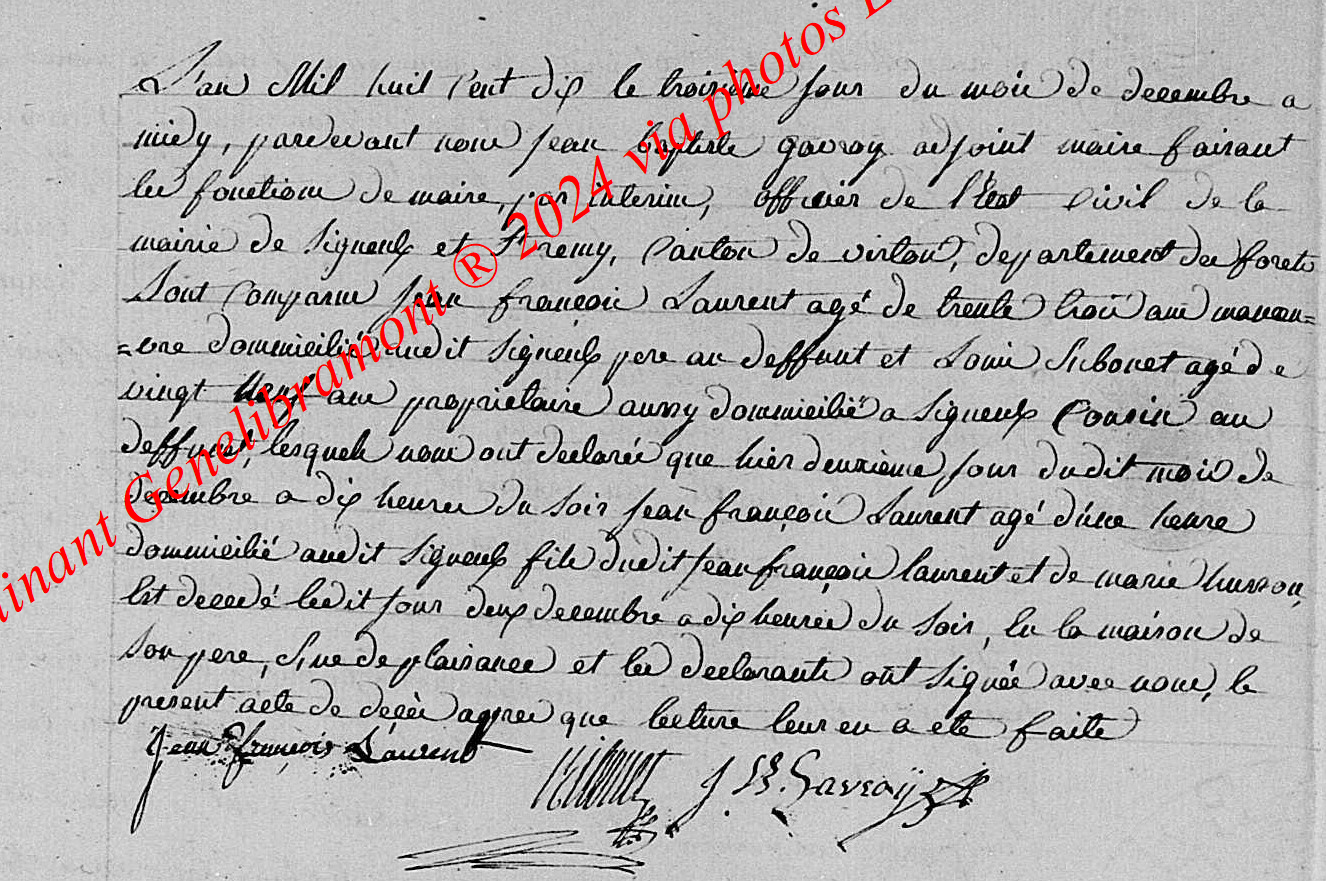 L'an Mil huit Cent dix le troisième jour du mois de decembre a
midy, pardevant nous jean baptiste gavroy adjoint maire faisant
les fonctions de maire, par interim, officier de l'Etat Civil de la
mairie de Signeulx et St remy, Canton de virton, departement des forets
Sont Comparus jean françois Laurent agé de trente trois ans manoeu=
=vre dommicilié audit Signeulx pere au deffunt et Louis Ribonet agé de
vingt neuf ans proprietaire aussy dommicilié a Signeulx Cousin au
deffunt, lesquels nous ont declarée que hier deuxième jour dudit mois de
decembre a dix heures du soir jean françois Laurent agé d'une heure
dommicilié audit Signeulx fils dudit jean françois laurent et de marie husson,
Est decedé ledit jour deux decembre a dix heures du soir, En la maison de
son pere, Sise de plaisance et les declarants ont signée avec nous, le
present acte de decès apprès que lecture leur en a eté faite
Jean François Laurent
J Bt. Gavroÿ
inant Genelibramont ® 2024 via photos